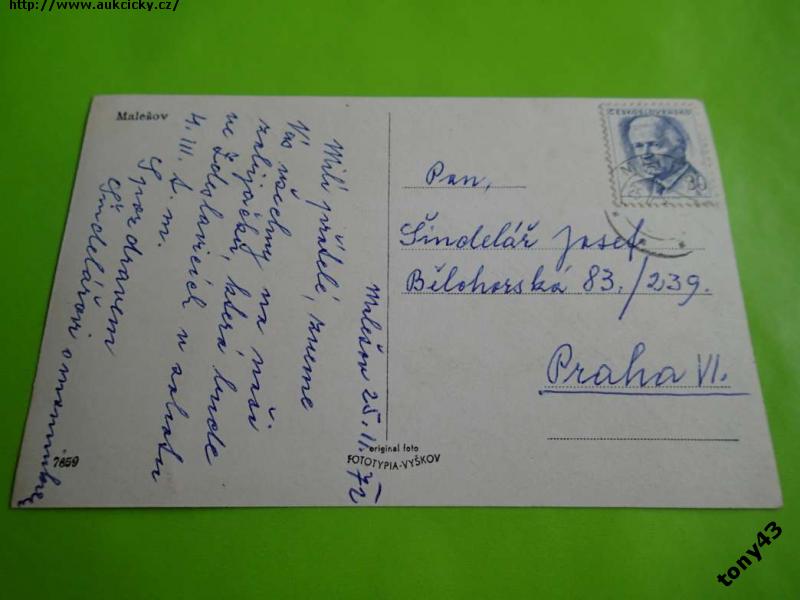 http://www.aukcicky.cz/
Malešov
Malešov 25.II.72
Milí přátelé, zveme
Vás všechny na naši
zabijačku, která bude
ve Zdeslavicích v sobotu
4. III. t. m.
S pozdravem
Šindelářovi
7859
original foto
FOTOTYPIA-VYŠKOV
ČESKOSLOVENSKO
30
Pan,
Šindelář Josef
Bělohorská 83./239.
Praha VI.
tony43